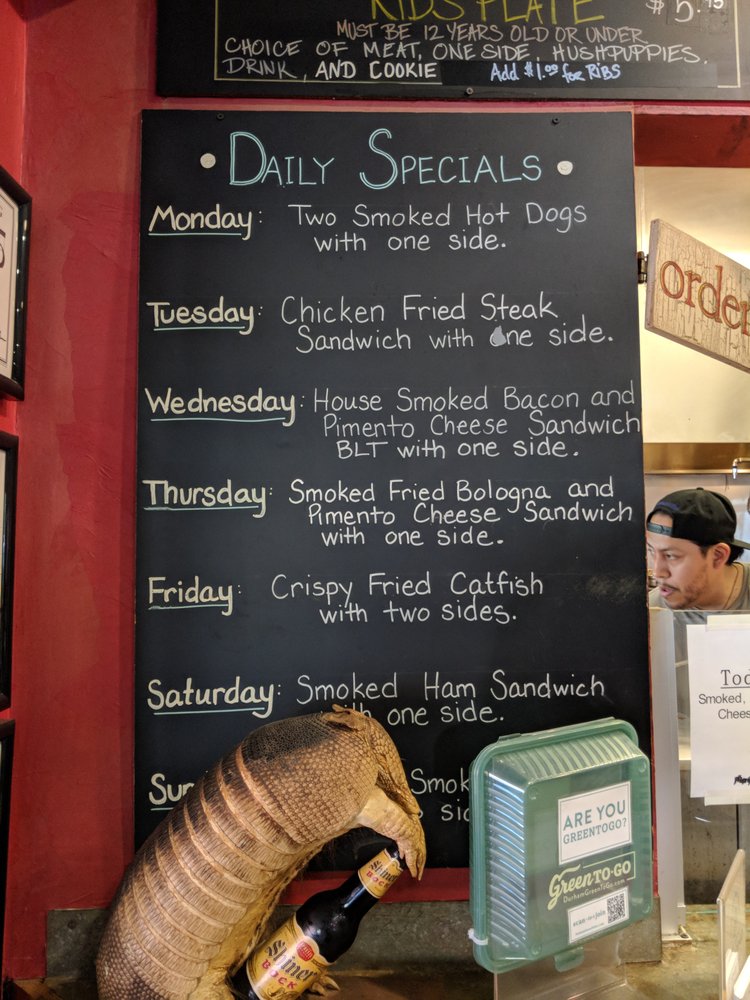 KIDS PLATE $5.95
MUST BE 12 YEARS OLD OR UNDER
CHOICE OF MEAT, ONE SIDE, HUSHPUPPIES,
DRINK, AND COOKIE Add $1.00 for RiBS
DAILY SPECIALS
Monday: Two Smoked Hot Dogs
with one side.
Tuesday: Chicken Fried Steak
Sandwich with one side.
Wednesday: House Smoked Bacon and
Pimento Cheese Sandwich
BLT with one side.
Thursday: Smoked Fried Bologna and
Pimento Cheese Sandwich
with one side.
Friday: Crispy Fried Catfish
with two sides.
Saturday: Smoked Ham Sandwich
one side.
order
Smoked,
Chees
ARE YOU
GREENTOGO?
GreenTO-GO
DurhamGreenToGo.com
scan-to-join
Shiner
BOCK
Shiner
BOCK